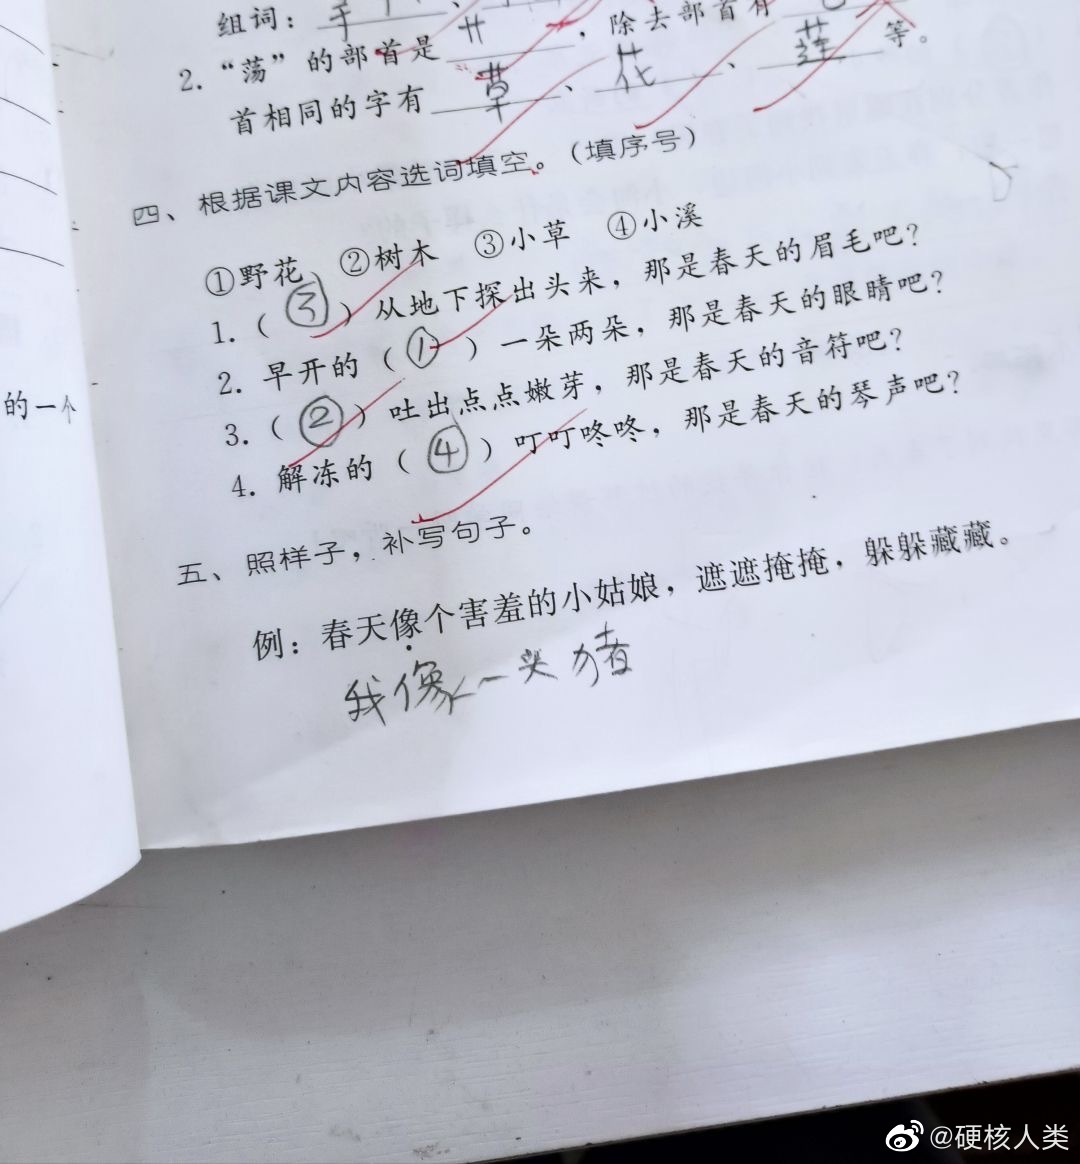 组词：手
2. “荡”的部首是 艹 ，除去部首有
首相同的字有 草 、 花 、 莲 等。
四、根据课文内容选词填空。（填序号）
①野花 ②树木 ③小草 ④小溪
1.（ ③ ）从地下探出头来，那是春天的眉毛吧？
2. 早开的（ ① ）一朵两朵，那是春天的眼睛吧？
3.（ ② ）吐出点点嫩芽，那是春天的音符吧？
4. 解冻的（ ④ ）叮叮咚咚，那是春天的琴声吧？
五、照样子，补写句子。
例：春天像个害羞的小姑娘，遮遮掩掩，躲躲藏藏。
我像一头猪
的一个
@硬核人类